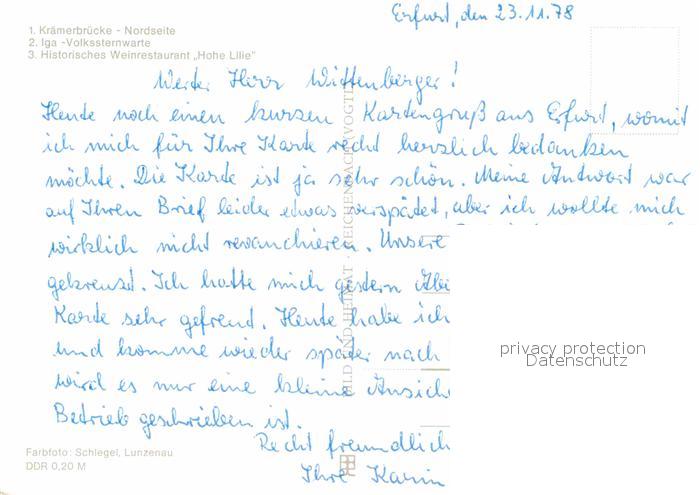 Erfurt, den 23.11.78
1. Krämerbrücke - Nordseite
2. Iga -Volkssternwarte
3. Historisches Weinrestaurant „Hohe Lilie"
Werter Herr Wüttenberger!
Heute noch einen kurzen Kartengruß aus Erfurt, womit
ich mich für Ihre Karte recht herzlich bedanken
möchte. Die Karte ist ja sehr schön. Meine Antwort war
auf Ihren Brief leider etwas verspätet, aber ich wollte mich
wirklich nicht revanchieren. Unsere
gekreuzt. Ich hatte mich gestern
Karte sehr gefreut. Heute habe ich
und komme wieder später nach
wird es nur eine kleine
Betrieb geschrieben ist.
Recht freundlich
Ihre Karin
BILD UND HEIMAT · REICHENBACH (VOGTL
Farbfoto: Schlegel, Lunzenau
DDR 0,20 M
privacy protection
Datenschutz